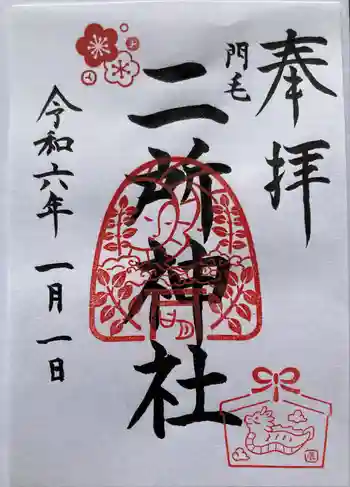 奉拝
門毛
二所神社
令和六年 一月一日
辰